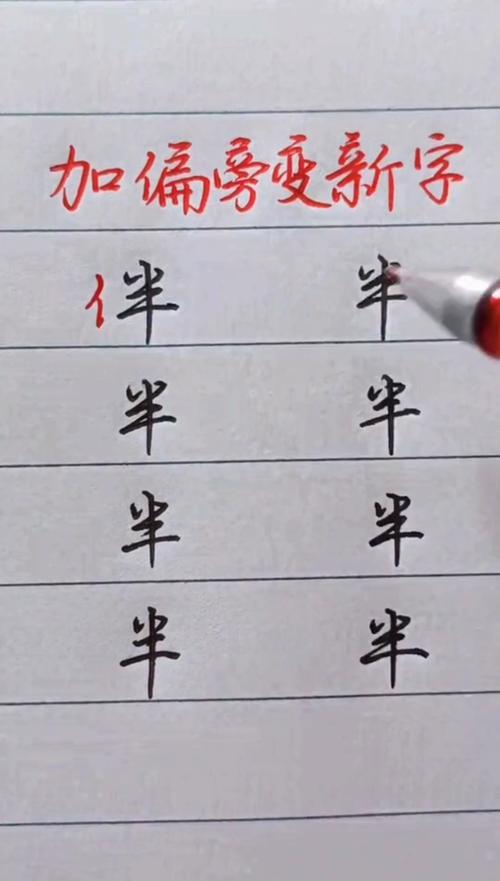 加偏旁变新字
伴 半
半 半
半 半
半 半